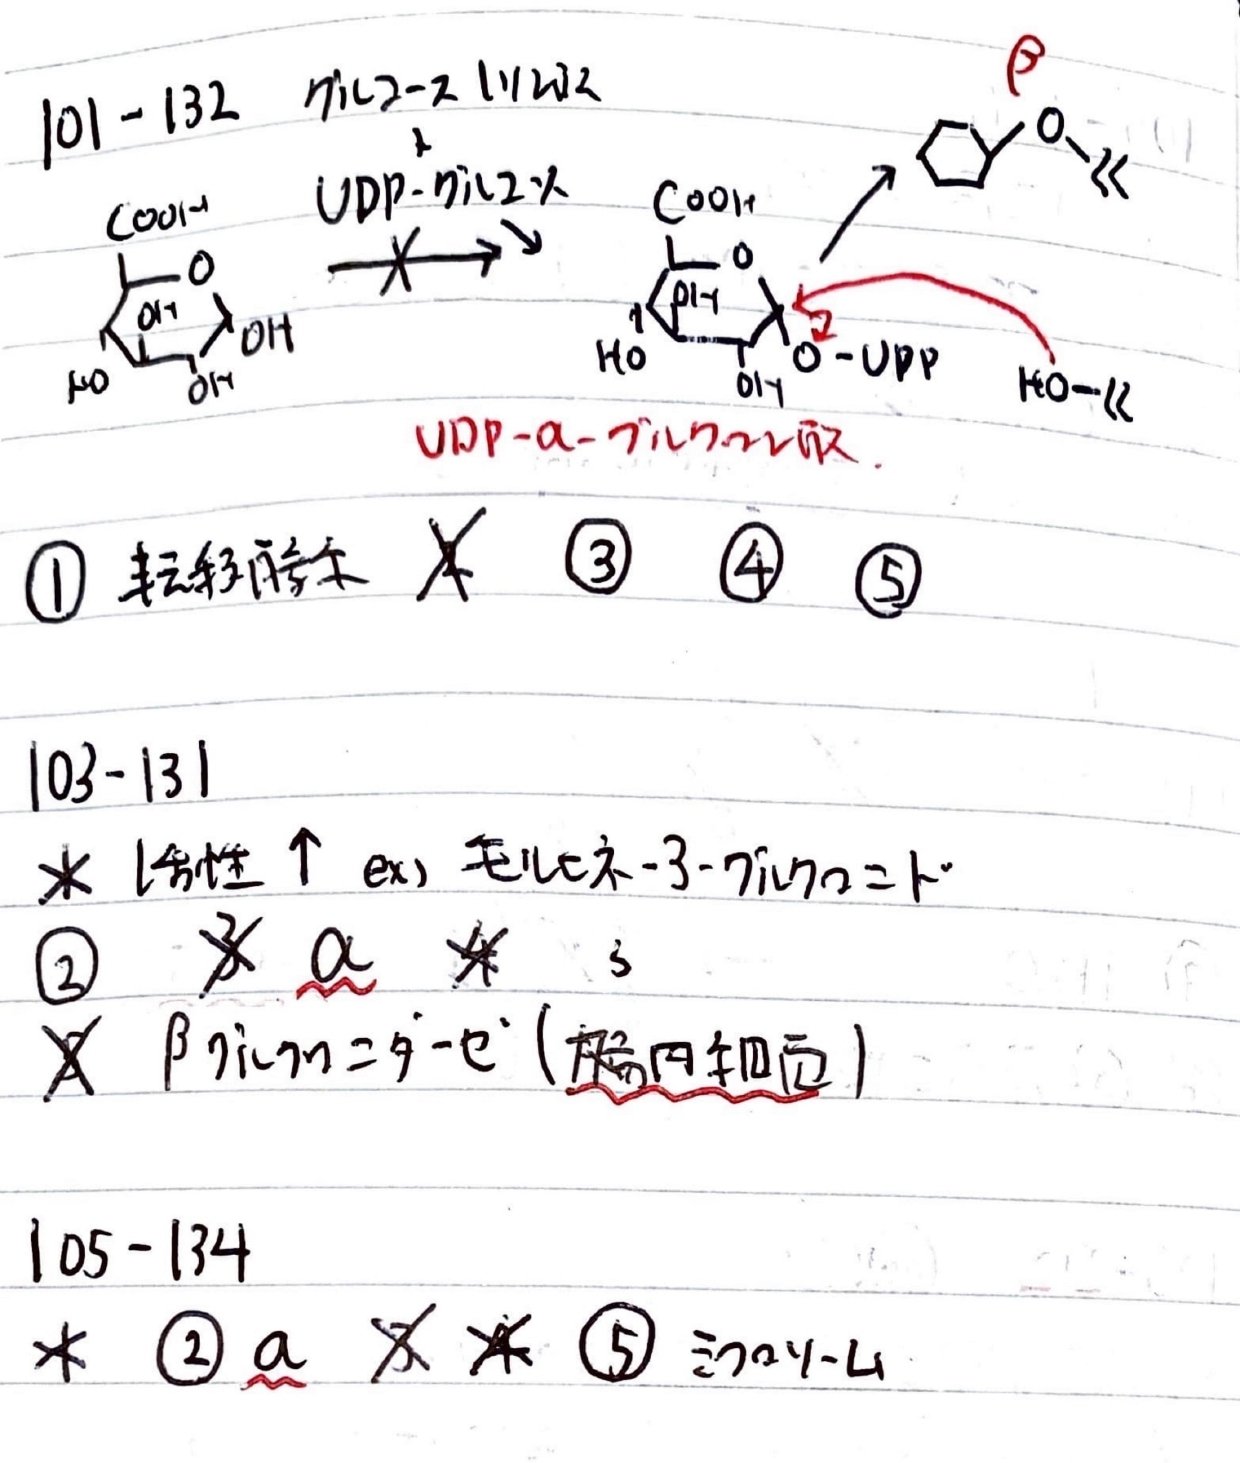 101-132 グルコース1リン酸
↓
UDP-グルコース
β
O
COOH
O
OH
OH
HO
OH
COOH
O
OH
HO
OH
O-UDP
HO
UDP-α-グルクロン酸
① 転移酵素 2 ③ ④ ⑤
103-131
1 活性↑ ex) モルヒネ-3-グルクロニド
② 3 α 4 3
5 βグルクロニダーゼ(腸内細菌)
105-134
1 ② α 3 4 ⑤ ミクロソーム